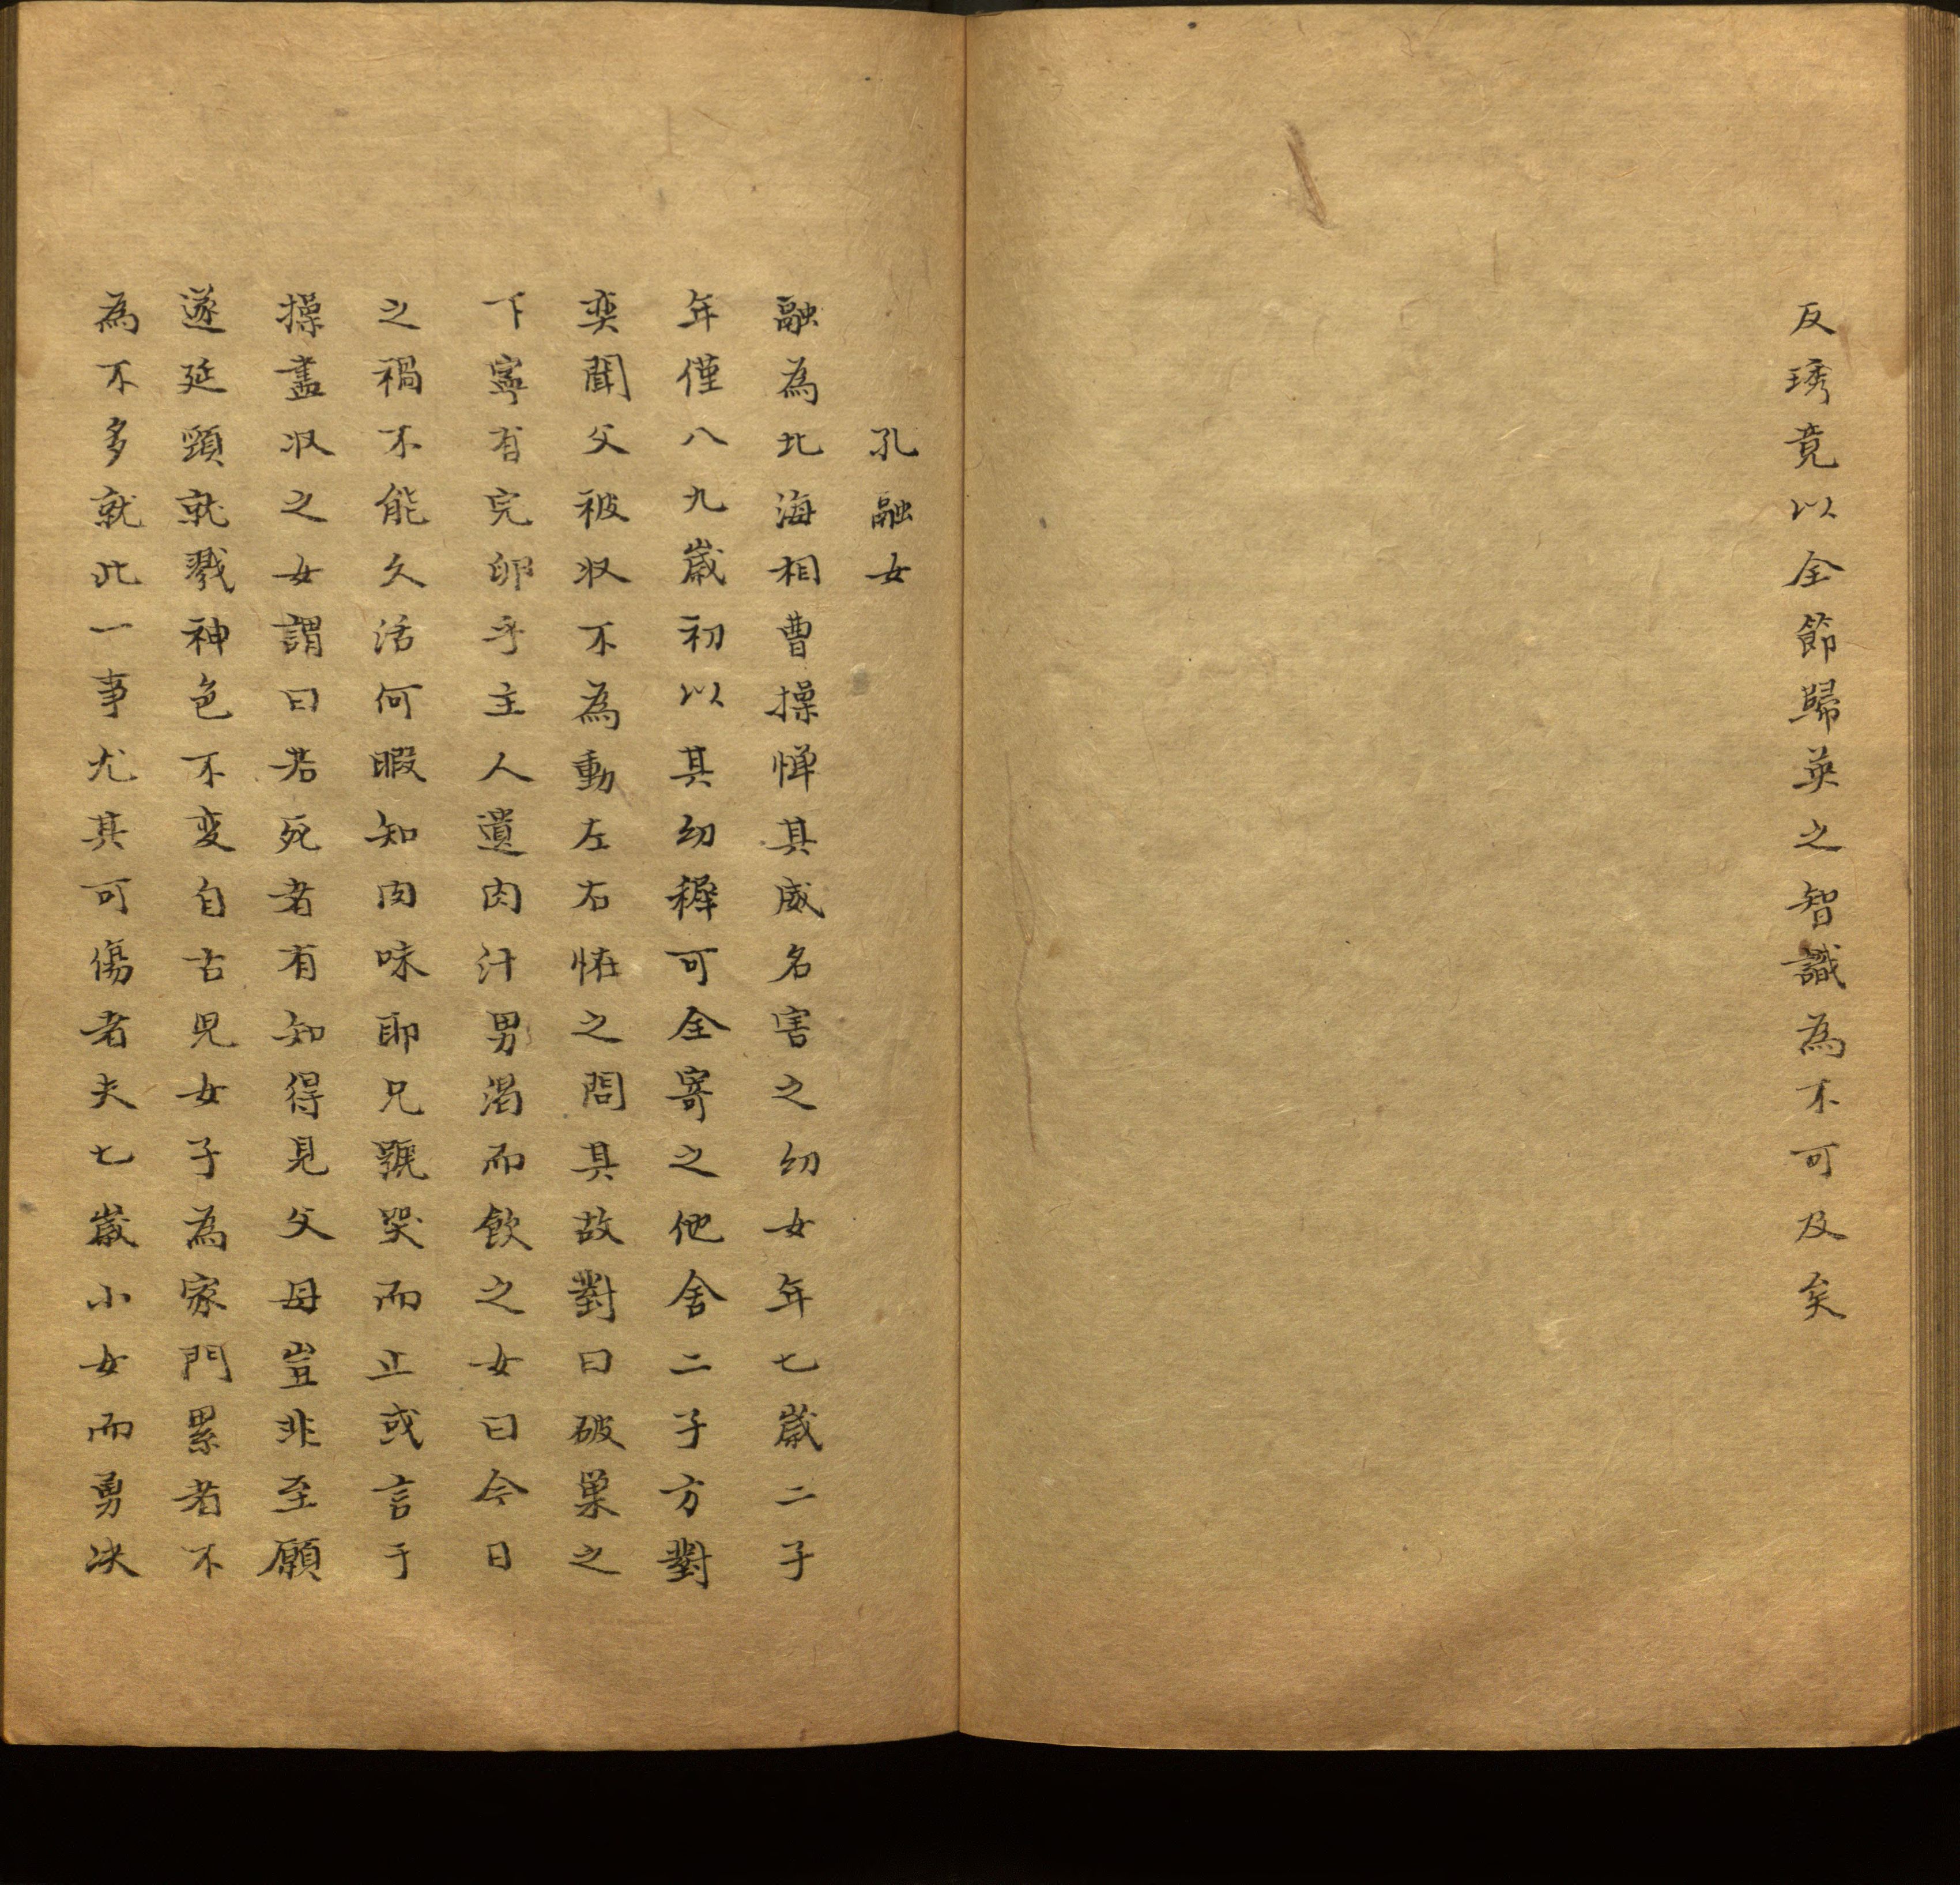 反琇竟以全節歸英之智識為不可及矣
孔融女
融為北海相曹操憚其威名害之幼女年七歲二子
年僅八九歲初以其幼穉可全寄之他舍二子方對
奕聞父被収不為動左右怪之問其故對曰破巢之
下寧有完卵乎主人遺肉汁男渴而飲之女曰今日
之禍不能久活何暇知肉味耶兄號哭而止或言于
操盡収之女謂曰若死者有知得見父母豈非至願
遂延頸就戮神色不变自古児女子為家門累者不
為不多就此一事尤其可傷者夫七歲小女而勇决